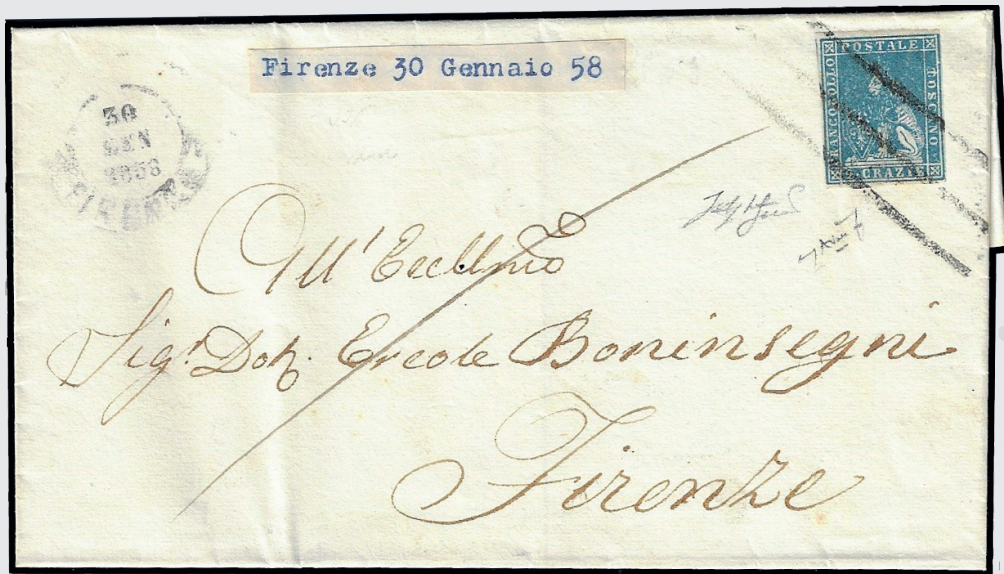 Firenze 30 Gennaio 58
30
GEN
1858
FIRENZE
FRANCOBOLLO POSTALE TOSCANO
CRAZIE
All' Eccllmo
Sigr. Dott. Ercole Boninsegni
Firenze